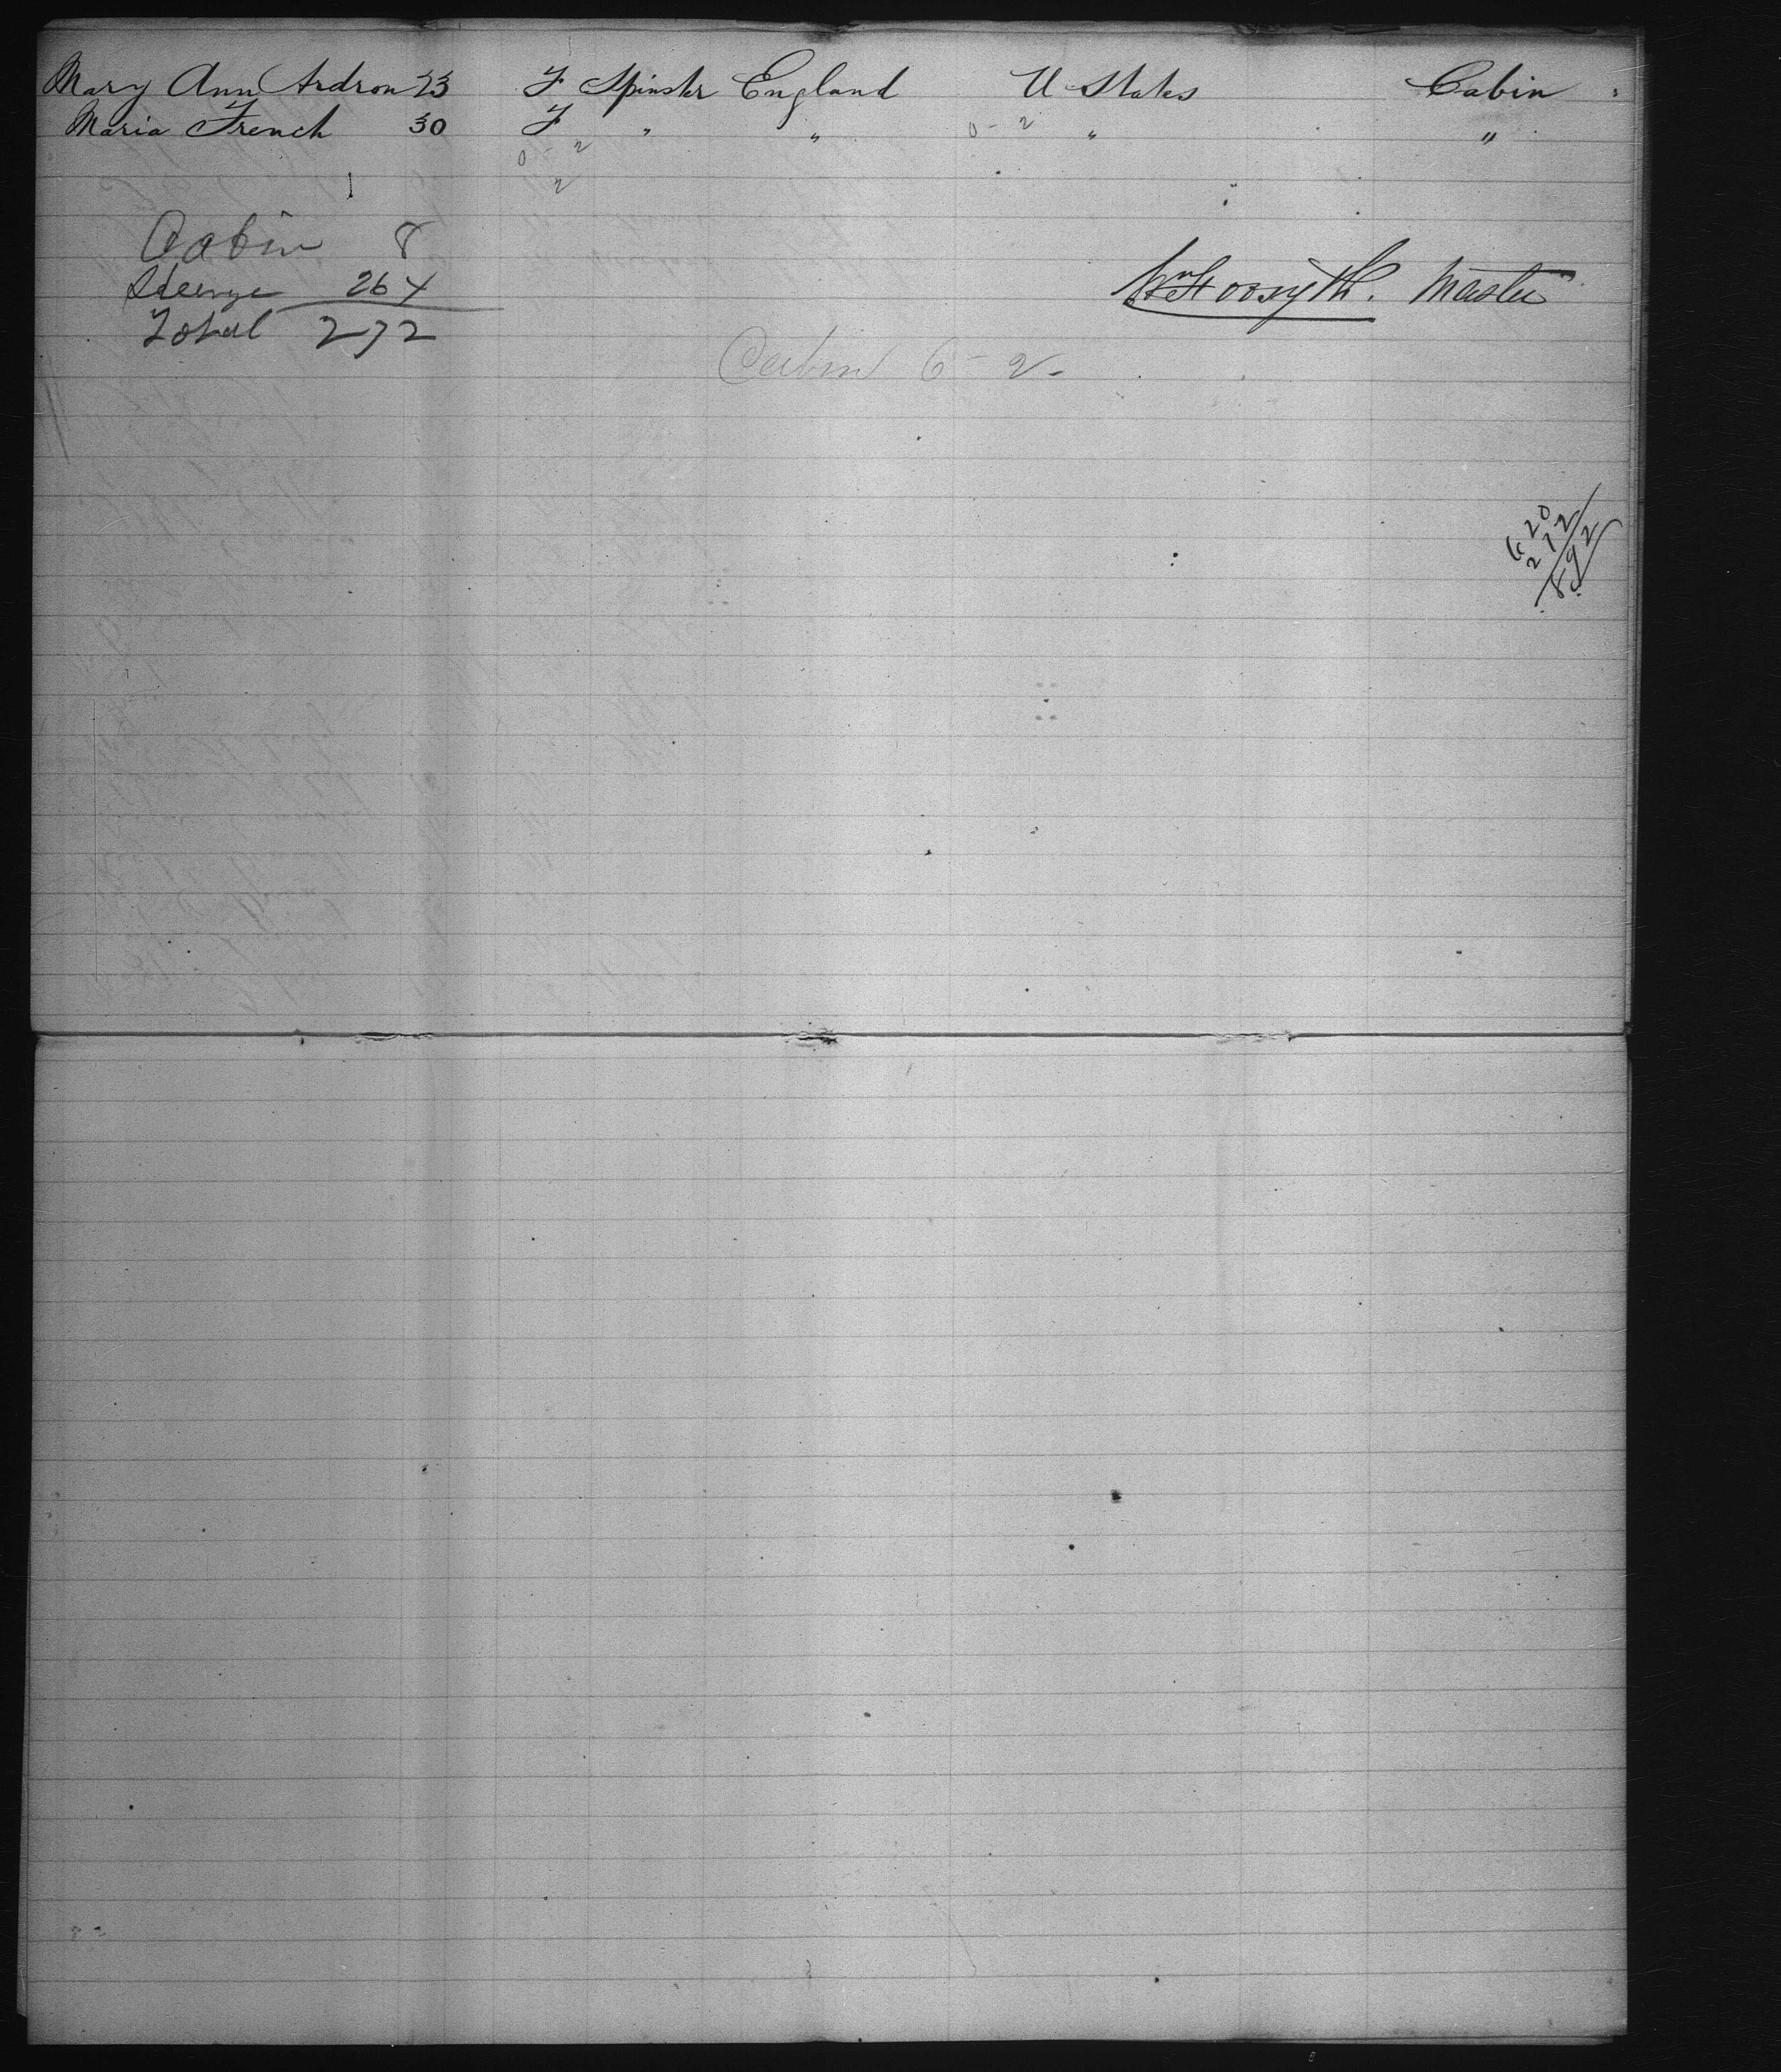 Mary Ann Ardron 23 F Spinster England U States Cabin
Maria French 30 F " " 0 - 2 " "
0 - 2
2
Cabin 8
Steerage 264
Total 272
Wm Forsyth. Master
Cabin 6 - 2 -
620
272
892